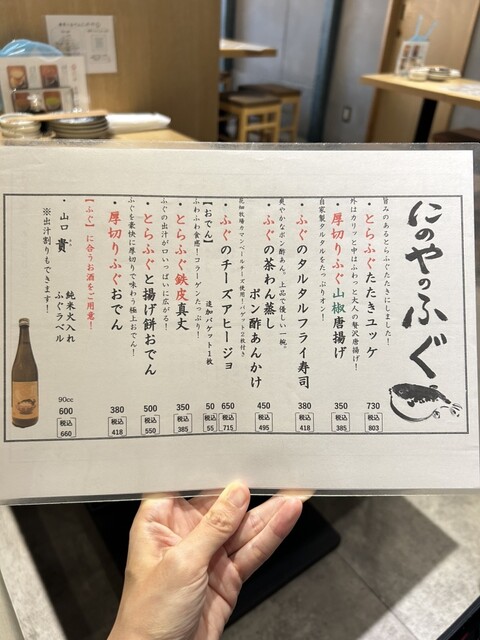 にのやのふぐ
旨みのあるとらふぐたたきにしました!
・とらふぐたたきユッケ
730
税込
803
外はカリッと中はふわっと大人の贅沢唐揚げ!
・厚切りふぐ山椒唐揚げ
350
税込
385
自家製タルタルをたっぷりオン!
・ふぐのタルタルフライ寿司
380
税込
418
爽やかなポン酢あん。上品で優しい一椀。
・ふぐの茶わん蒸し
ポン酢あんかけ
450
税込
495
花畑牧場カマンベールチーズ使用!バゲット2枚付き
・ふぐのチーズアヒージョ
650
税込
715
追加バゲット1枚
50
税込
55
【おでん】
ふわふわ食感!コラーゲンたっぷり!
・とらふぐ鉄皮真丈
350
税込
385
ふぐの出汁がいっぱいに広がる!
・とらふぐと揚げ餅おでん
500
税込
550
ふぐを豪快に厚切りで味わう極上おでん!
・厚切りふぐおでん
380
税込
418
【ふぐ】に合うお酒をご用意!
・山口 貴 純米火入れ
ふぐラベル
90cc
600
税込
660
※出汁割りもできます!